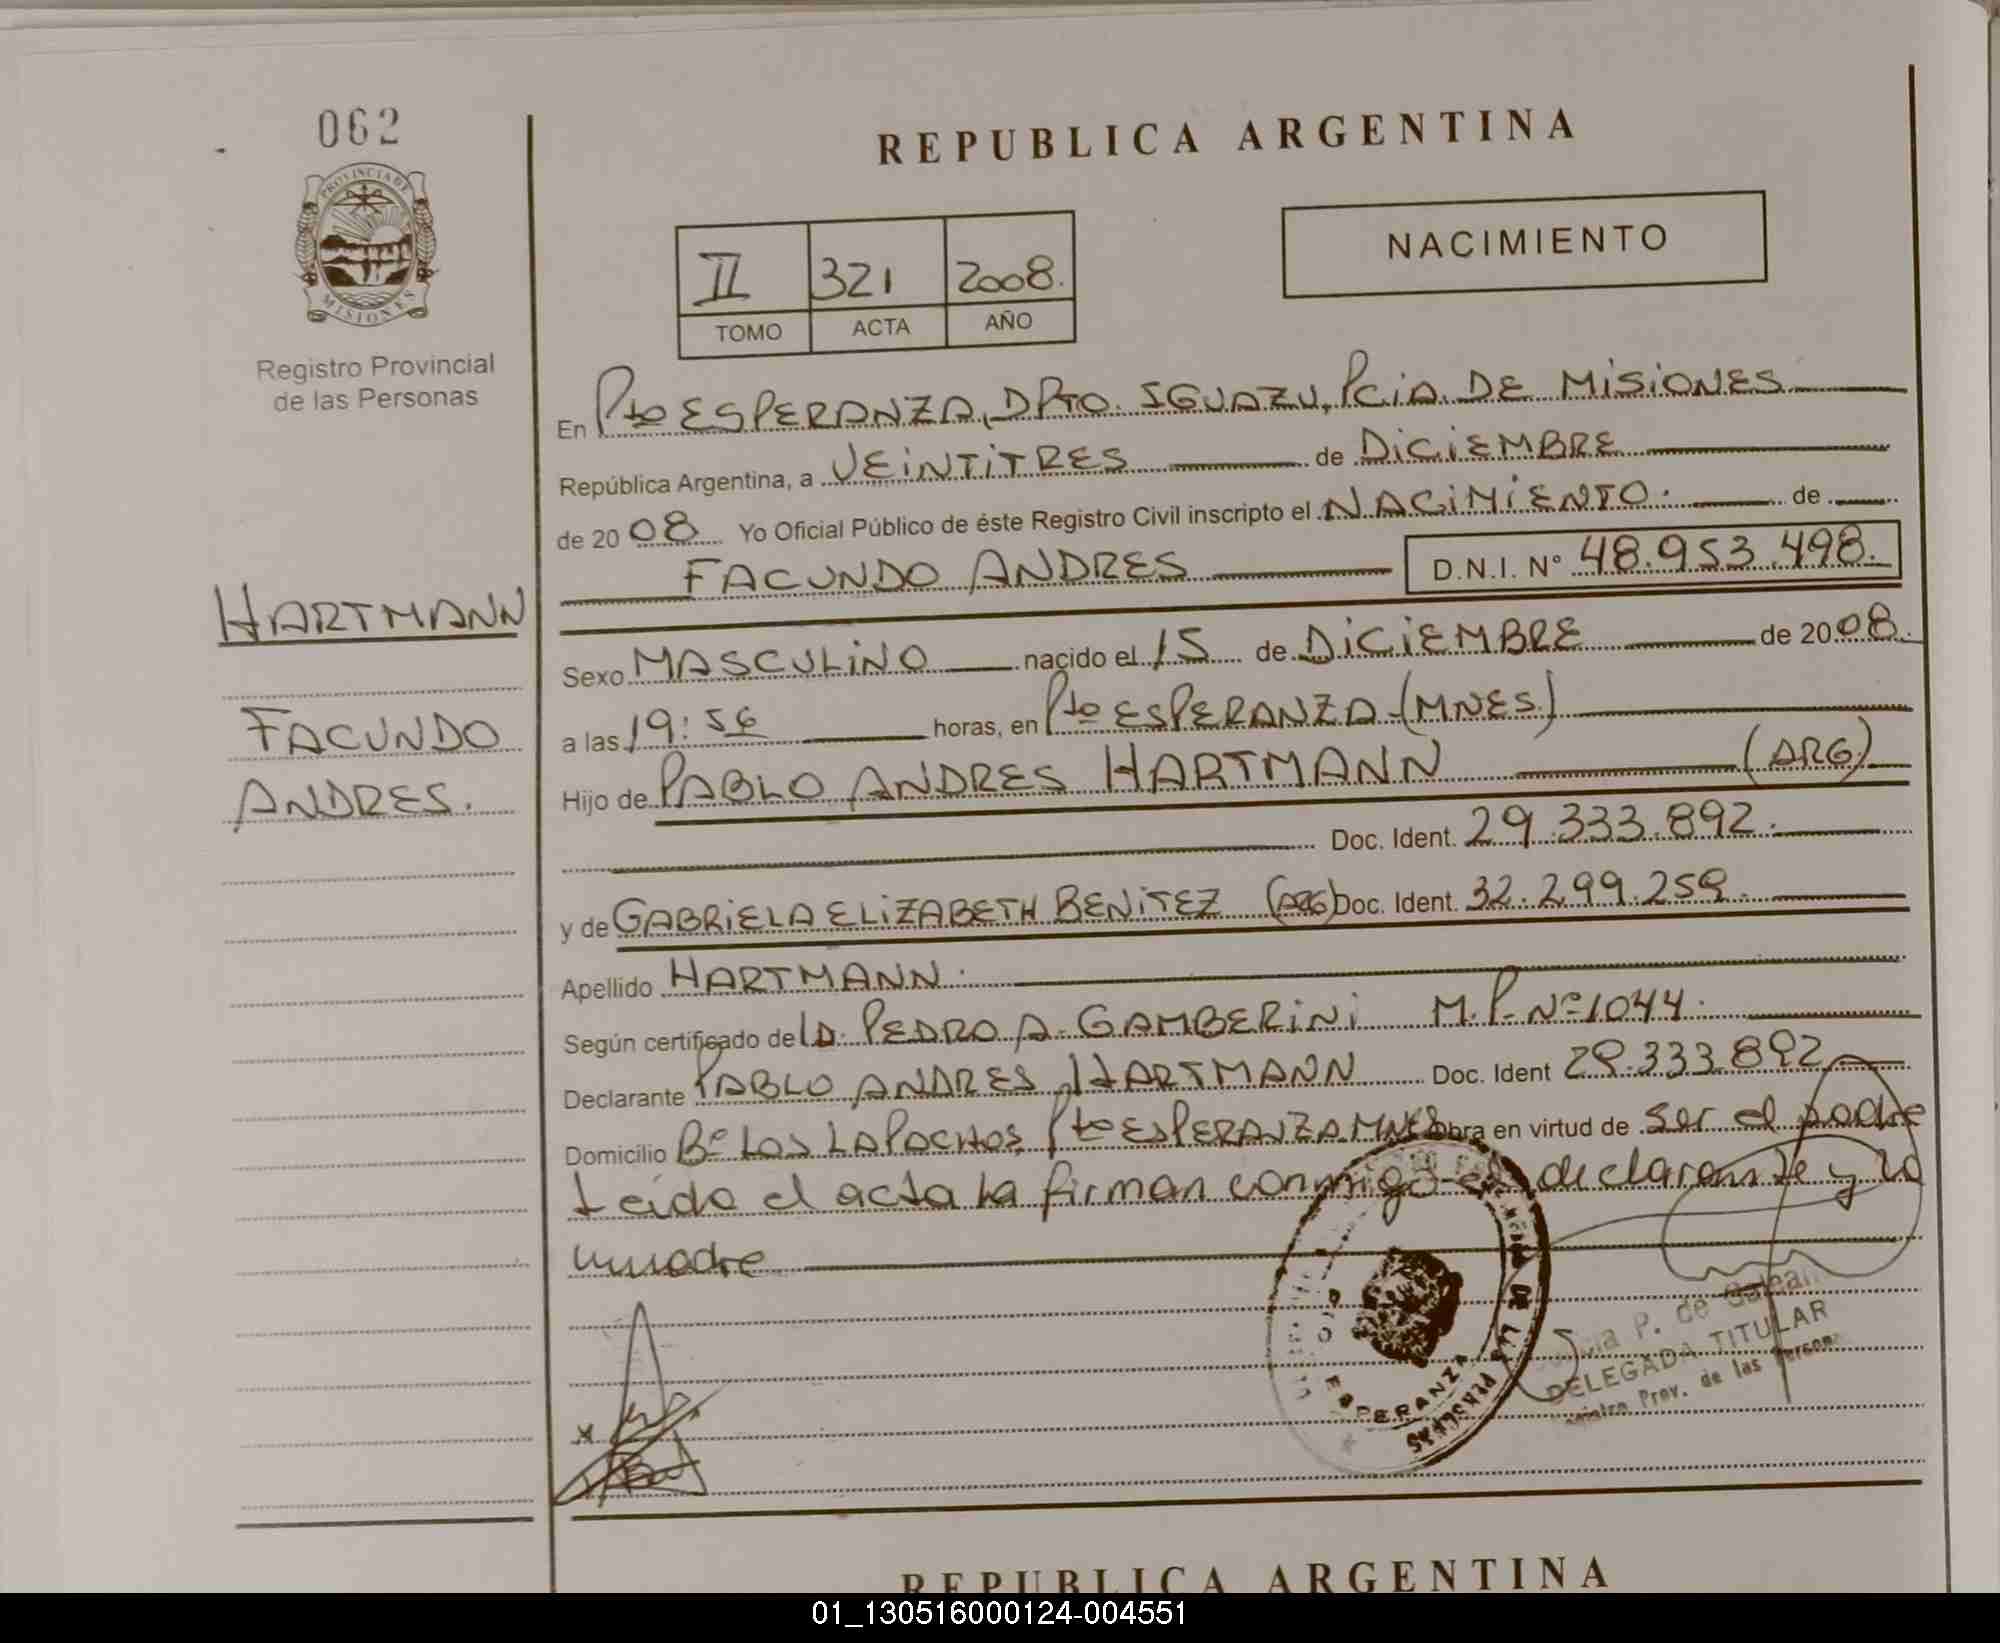 062
REPUBLICA ARGENTINA
PROVINCIA DE
MISIONES
Registro Provincial
de las Personas
NACIMIENTO
II 321 2008.
TOMO ACTA AÑO
HARTMANN
FACUNDO
ANDRES.
En Pto ESPERANZA, DPTO. IGUAZU, PCIA. DE MISIONES
República Argentina, a VEINTITRES de DICIEMBRE
de 2008 Yo Oficial Público de éste Registro Civil inscripto el NACIMIENTO. de
FACUNDO ANDRES D.N.I. N° 48.953.498.
Sexo MASCULINO nacido el 15 de DICIEMBRE de 2008.
a las 19:56 horas, en Pto ESPERANZA-(MNES)
Hijo de PABLO ANDRES HARTMANN (ARG)
Doc. Ident. 29.333.892.
y de GABRIELA ELIZABETH BENITEZ (ARG) Doc. Ident. 32.299.259.
Apellido HARTMANN.
Según certificado de PEDRO A. GAMBERINI M.P. Nº 1044.
Declarante PABLO ANDRES HARTMANN Doc. Ident 29.333.892
Domicilio Bº LOS LAPACHOS, Pto ESPERANZA.MNES obra en virtud de ser el padre
Leida el acta la firman conmigo el declarante y la
madre
x
DE LAS PERSONAS
ESPERANZA
P. de
DELEGADA TITULAR
Prov. de las
REPUBLICA ARGENTINA
01_130516000124-004551